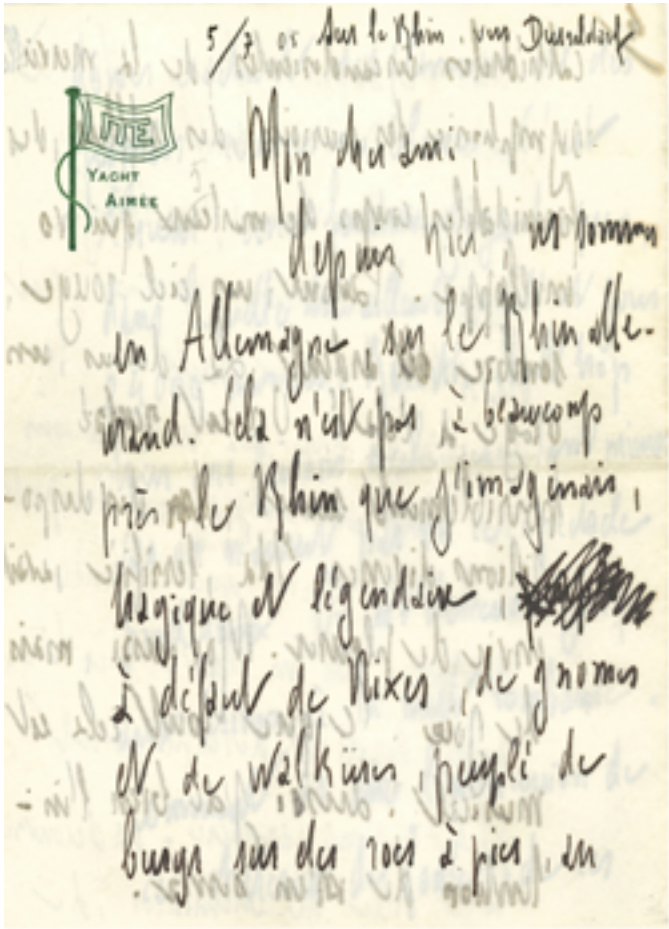 5/7 05 Sur le Rhin. vers Düsseldorf
YACHT
AIMÉE
Mon cher ami,
depuis hier, ns sommes
en Allemagne, sur le Rhin alle-
mand. Cela n'est pas à beaucoup
près le Rhin que j'imaginais,
tragique et légendaire,
à défaut de Nixes, de gnomes
et de Walküres, peuplé de
burgs sur des rocs à pics,